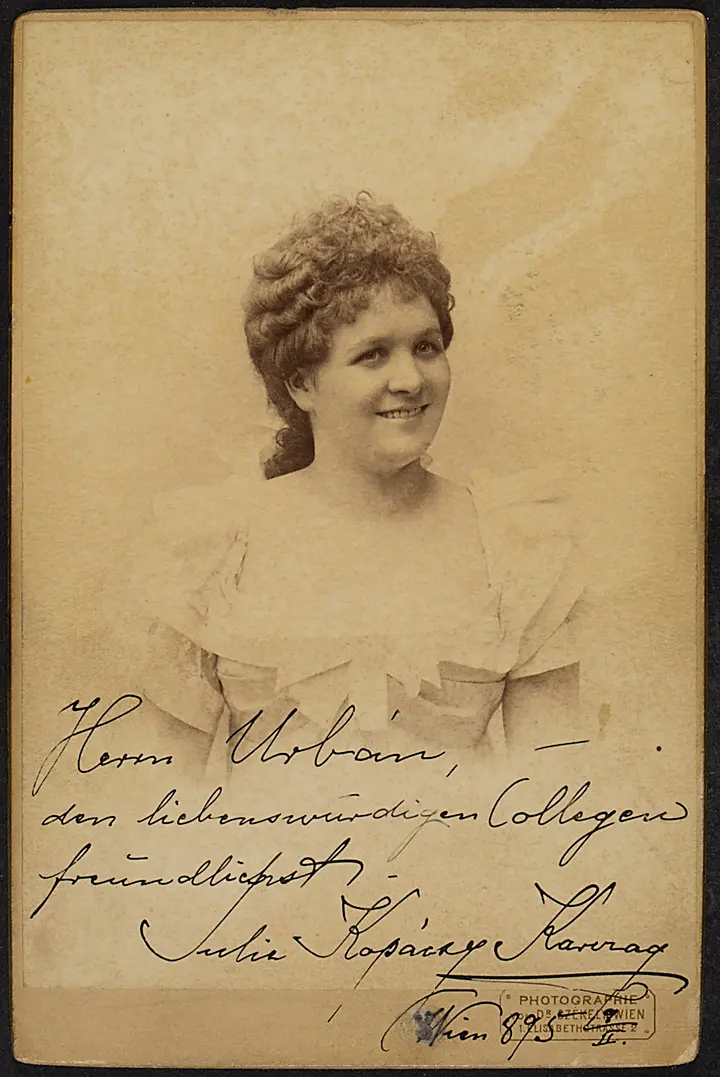 Herrn Urbán, —
den liebenswürdigen Collegen
freundlichst. -
Julie Kopácsy Karczag
Wien 895 9/II.
PHOTOGRAPHIE
DR. SZEKELY WIEN
1. ELISABETHSTRASSE 2